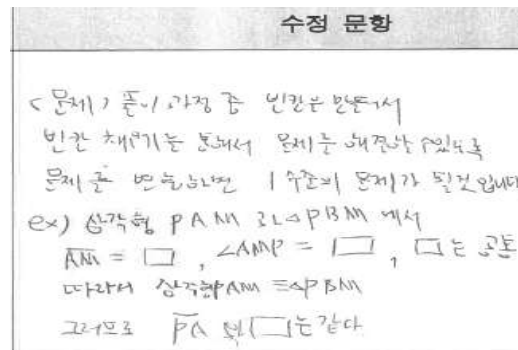 수정 문항
<문제> 풀이 과정 중 빈칸을 만들어서
빈칸 채우기를 통해서 문제를 해결할 수 있도록
문제를 만든다면 1수준의 문제가 될것입니다
ex) 삼각형 PAM 과 △PBM 에서
AM = □ , ∠AMP = □ , □는 공통
따라서 삼각형PAM ≡△PBM
그러므로 PA 와 □는 같다.